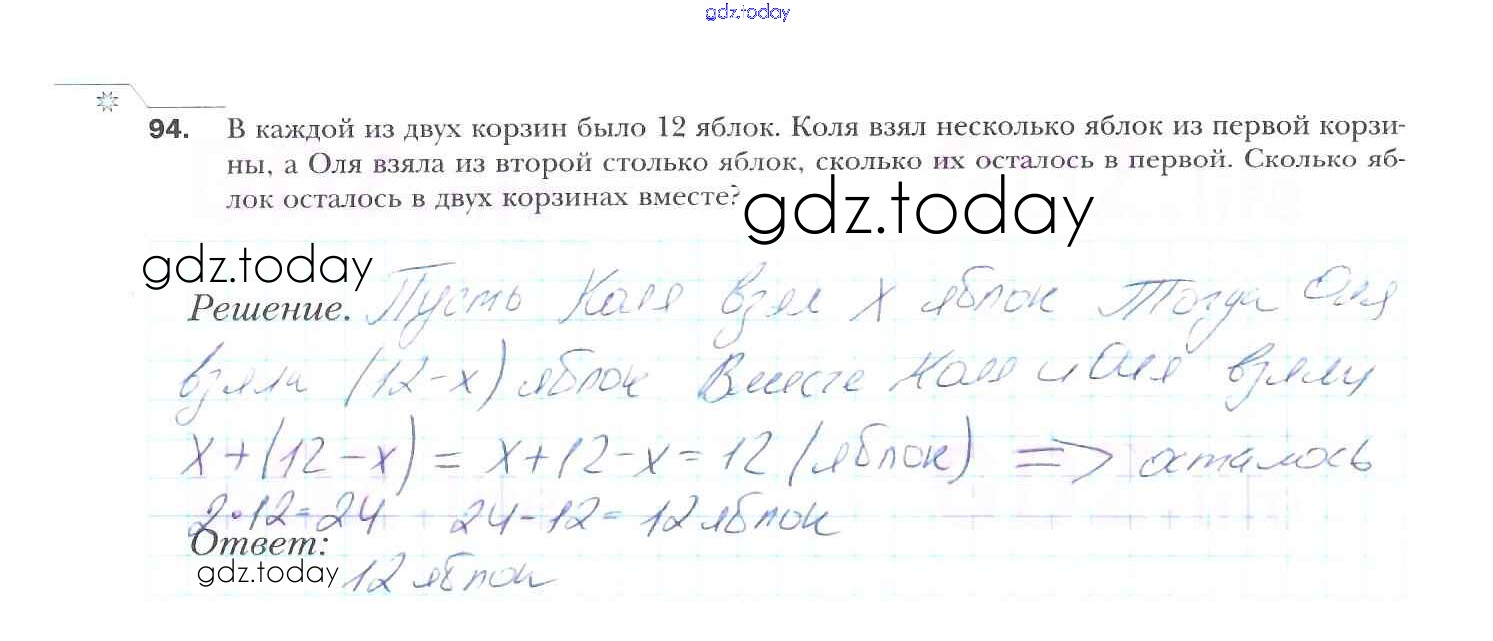 gdz.today
94. В каждой из двух корзин было 12 яблок. Коля взял несколько яблок из первой корзи-
ны, а Оля взяла из второй столько яблок, сколько их осталось в первой. Сколько яб-
лок осталось в двух корзинах вместе?
gdz.today
gdz.today
Решение. Пусть Коля взял x яблок Тогда Оля
взяла (12-x) яблок Вместе Коля и Оля взяли
x+(12-x)=x+12-x=12 (яблок) => осталось
2·12=24 24-12=12 яблок
Ответ:
gdz.today 12 яблок